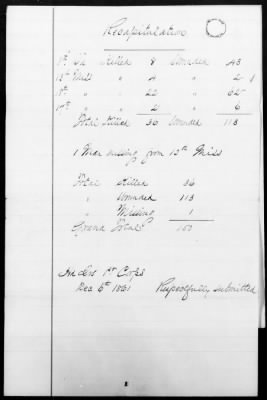 Recapitulation
8th Va Killed 8 Wounded 43
13th Miss " 4 " 2
18th " " 22 " 62
17th " " 2 " 6
Total Killed 36 Wounded 113
1 Man missing from 13th Miss
Total Killed 36
" Wounded 113
" Missing 1
Grand Total 150
Hd Qrs 1st Corps
Dec 6th 1861 Respectfully submitted